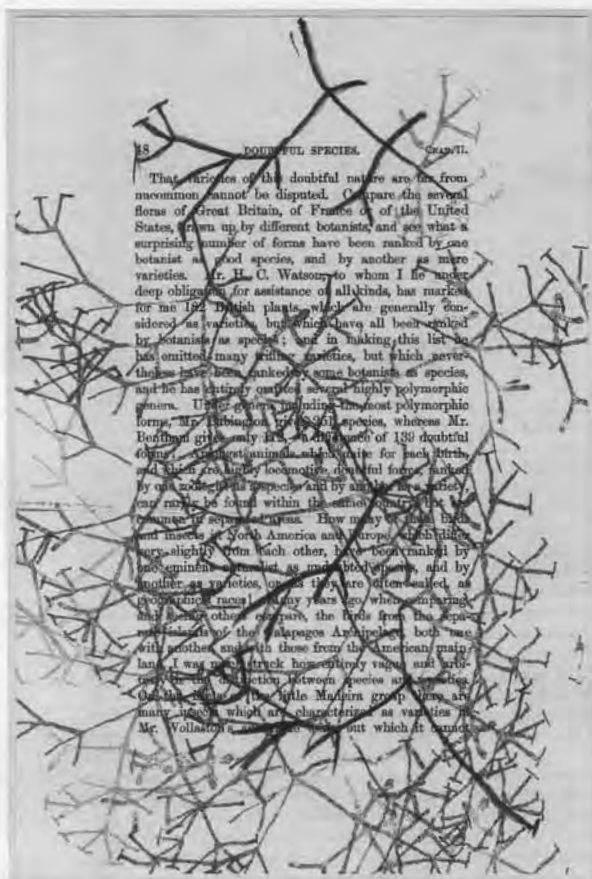 48 DOUBTFUL SPECIES. CHAP. II.
That varieties of this doubtful nature are far from
uncommon cannot be disputed. Compare the several
floras of Great Britain, of France or of the United
States, drawn up by different botanists, and see what a
surprising number of forms have been ranked by one
botanist as good species, and by another as mere
varieties. Mr. H. C. Watson, to whom I lie under
deep obligation for assistance of all kinds, has marked
for me 182 British plants, which are generally con-
sidered as varieties, but which have all been ranked
by botanists as species; and in making this list he
has omitted many trifling varieties, but which never-
theless have been ranked by some botanists as species,
and he has entirely omitted several highly polymorphic
genera. Under genera, including the most polymorphic
forms, Mr. Babington gives 251 species, whereas Mr.
Bentham gives only 112,—a difference of 139 doubtful
forms! Amongst animals which unite for each birth,
and which are highly locomotive, doubtful forms, ranked
by one zoologist as a species and by another as a variety,
can rarely be found within the same country, but are
common in separated areas. How many of those birds
and insects in North America and Europe, which differ
very slightly from each other, have been ranked by
one eminent naturalist as undoubted species, and by
another as varieties, or, as they are often called, as
geographical races! Many years ago, when comparing,
and seeing others compare, the birds from the sepa-
rate islands of the Galapagos Archipelago, both one
with another, and with those from the American main-
land, I was much struck how entirely vague and arbi-
trary is the distinction between species and varieties.
On the islets of the little Madeira group there are
many insects which are characterized as varieties in
Mr. Wollaston's work, but which it cannot